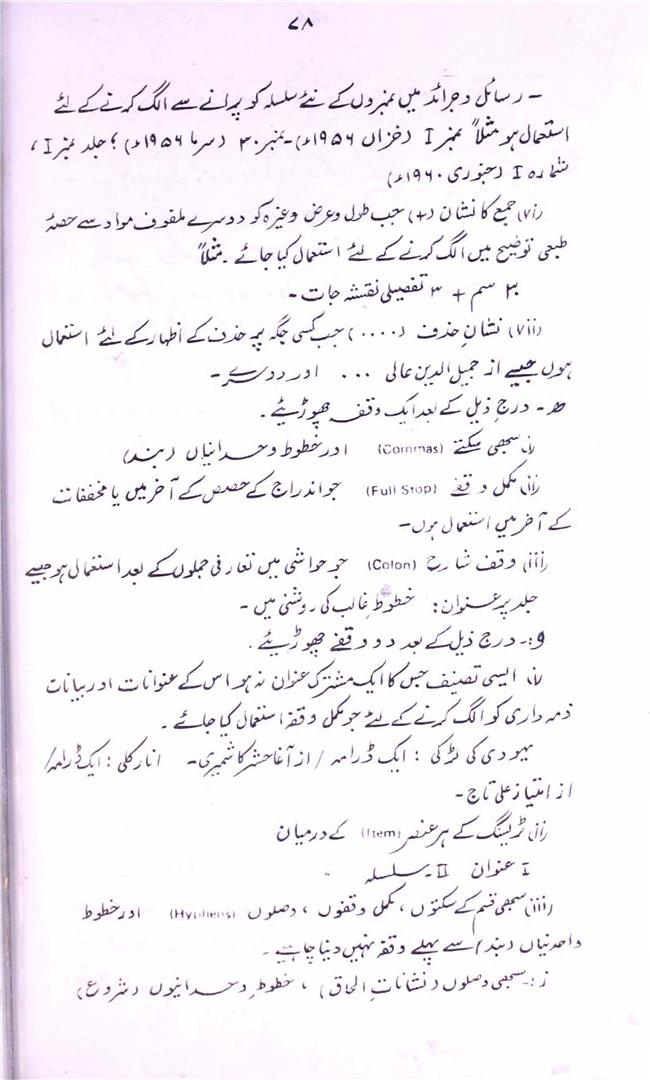 ۷۸
- رسائل و جرائد میں نمبروں کے نئے سلسلہ کو پرانے سے الگ کرنے کے لئے
استعمال ہو مثلاً نمبر I (خزاں ۱۹۵۶ء)-نمبر ۳۰ (سرما ۱۹۵۶ء) ؛ جلد نمبر I،
شمارہ I (جنوری ۱۹۶۰ء)
(vi) جمع کا نشان (+) جب طول و عرض وغیرہ کو دوسرے ملفوف مواد سے حصۂ
طبعی توضیح میں الگ کرنے کے لئے استعمال کیا جائے ۔ مثلاً
۳۰ سم + ۳ تفصیلی نقشہ جات -
(vii) نشانِ حذف (....) جب کسی جگہ پر حذف کے اظہار کے لئے استعمال
ہوں جیسے از جمیل الدین عالی ... اور دوسرے -
ھ - درج ذیل کے بعد ایک وقفہ چھوڑیئے ۔
(i) سبھی سکتے (Commas) اور خطوط وحدانیاں (بند)
(ii) مکمل وقفے (Full Stop) جو اندراج کے حصص کے آخر میں یا مخففات
کے آخر میں استعمال ہوں -
(iii) وقف شارح (Colon) جو حواشی میں تعارفی جملوں کے بعد استعمال ہو جیسے
جلد پر عنوان : خطوطِ غالب کی روشنی میں -
و :- درج ذیل کے بعد دو وقفے چھوڑیئے ۔
(i) ایسی تصنیف جس کا ایک مشترک عنوان نہ ہو اس کے عنوانات اور بیانات
ذمہ داری کو الگ کرنے کے لئے جو مکمل وقفہ استعمال کیا جائے ۔
یہودی کی لڑکی : ایک ڈرامہ / از آغا حشر کاشمیری - انار کلی : ایک ڈرامہ /
از امتیاز علی تاج -
(ii) ٹریسنگ کے ہر عنصر (Item) کے درمیان
I عنوان II ۔ سلسلہ
(iii) سبھی قسم کے سکتوں ، مکمل وقفوں ، وصلوں (Hyphens) اور خطوط
واحدنیاں (بند) سے پہلے وقفہ نہیں دینا چاہیے ۔
ز :- سبھی وصلوں (نشاناتِ الحاق) ، خطوطِ وحدانیوں (شروع)